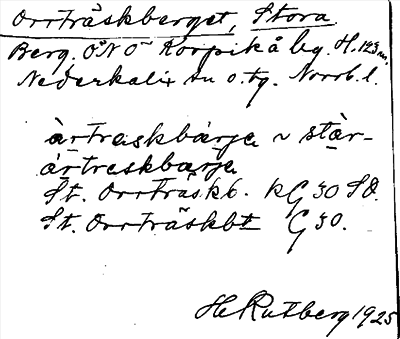 Orrträskberget, Stora
Berg. ÖNÖ Korpikå by. H. 123 m.
Nederkalix sn o. tg. Norrb. l.
àrtraskbárja ~ stàr-
ártreskbarja
St. Orrträskb. KG 30 SO.
St. Orrträskbt G 30.
H Rutberg 1925